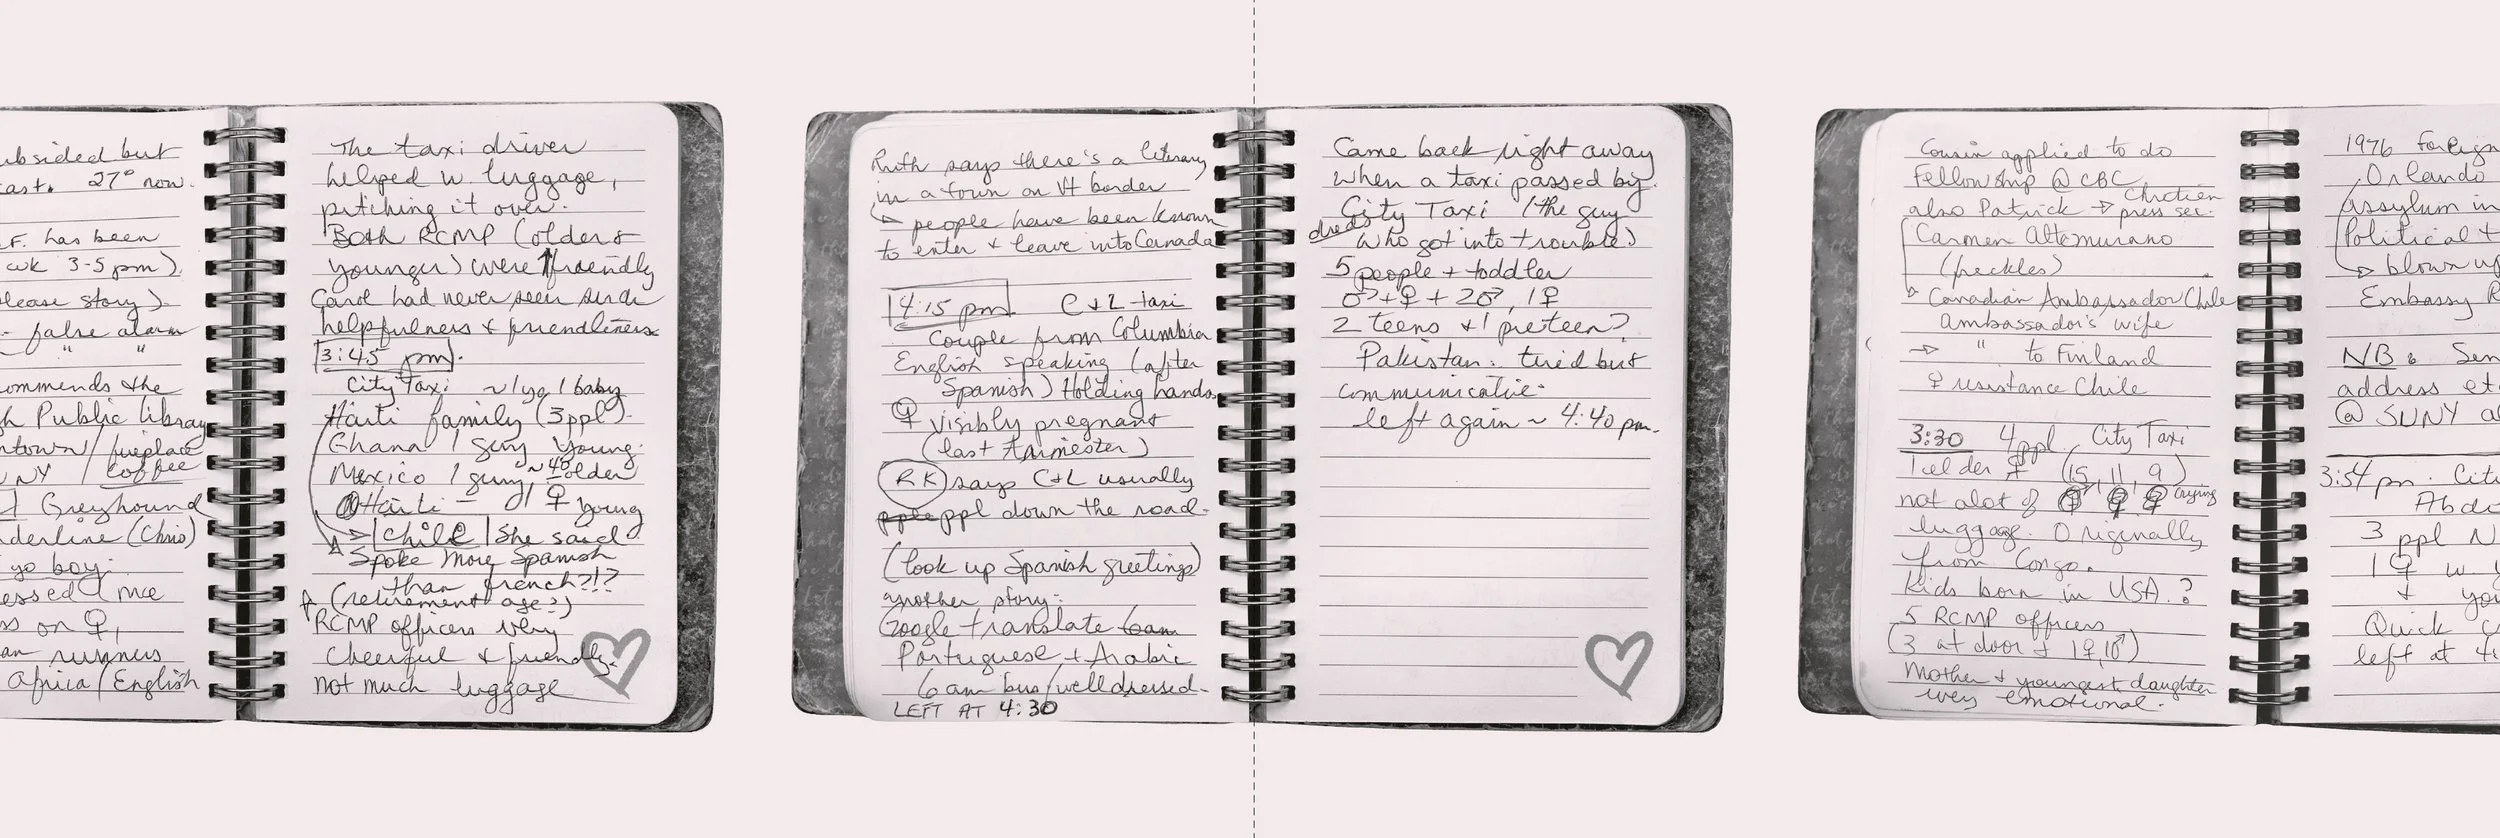 ubsided but
cast. 27° now.
F. has been
wk 3-5 pm)
lease story)
- false alarm
" "
ommends the
gh Public library
ntown / fireplace
NY / coffee
Greyhound
derline (Chris)
yo boy.
essed nice
ss on ♀,
an runners
Africa / English
The taxi driver
helped w. luggage,
pitching it over.
Both RCMP (older &
younger) were friendly
Carol had never seen such
helpfulness & friendliness
3:45 pm.
City Taxi ~1 yo 1 baby
Haiti family (3 ppl).
Ghana 1 guy young.
Mexico 1 guy, ~40 older
Haiti - 1 ♀ young
→ Chile She said
Spoke More Spanish
than french?!?
(retirement age?)
RCMP officers very
Cheerful & friendly.
not much luggage
Ruth says there's a literary
in a town on Vt border
→ people have been known
to enter & leave into Canada
4:15 pm C+L taxi
couple from Columbia
English speaking (after
Spanish) Holding hands.
♀ visibly pregnant
(last trimester)
RK says C+L usually
ppl down the road.
(look up Spanish greetings)
another story:
Google translate 6am
Portuguese + Arabic
6 am bus / well dressed.
LEFT AT 4:30
Came back right away
when a taxi passed by.
City Taxi (the guy
dreds
who got into trouble)
5 people + toddler
♂ + ♀ + 2♂, 1♀
2 teens + 1 preteen?
Pakistan: tired but
communicative.
left again ~ 4:40 pm.
Cousin applied to do
Fellowship @ CBC
also Patrick → Chretien press sec.
Carmen Altamurano
(freckles)
→ Canadian Ambassador Chile
Ambassador's wife
→ " to Finland
♀ resistance Chile
3:30 4 ppl City Taxi
1 elder ♀ (15, 11, 9)
not alot of ♀ ♀ ♀ crying
luggage. Originally
from Congo.
Kids born in USA.?
5 RCMP officers
(3 at door + 1♀, 1♂)
Mother & youngest daughter
very emotional.
1976 Foreign
Orlando
assylum in
Political +
→ blown up
Embassy R
NB: Sen
address etc
@ SUNY al
3:54 pm. City
Abdu
3 ppl N
1 ♀ w y
+ you
Quick c
left at 4: